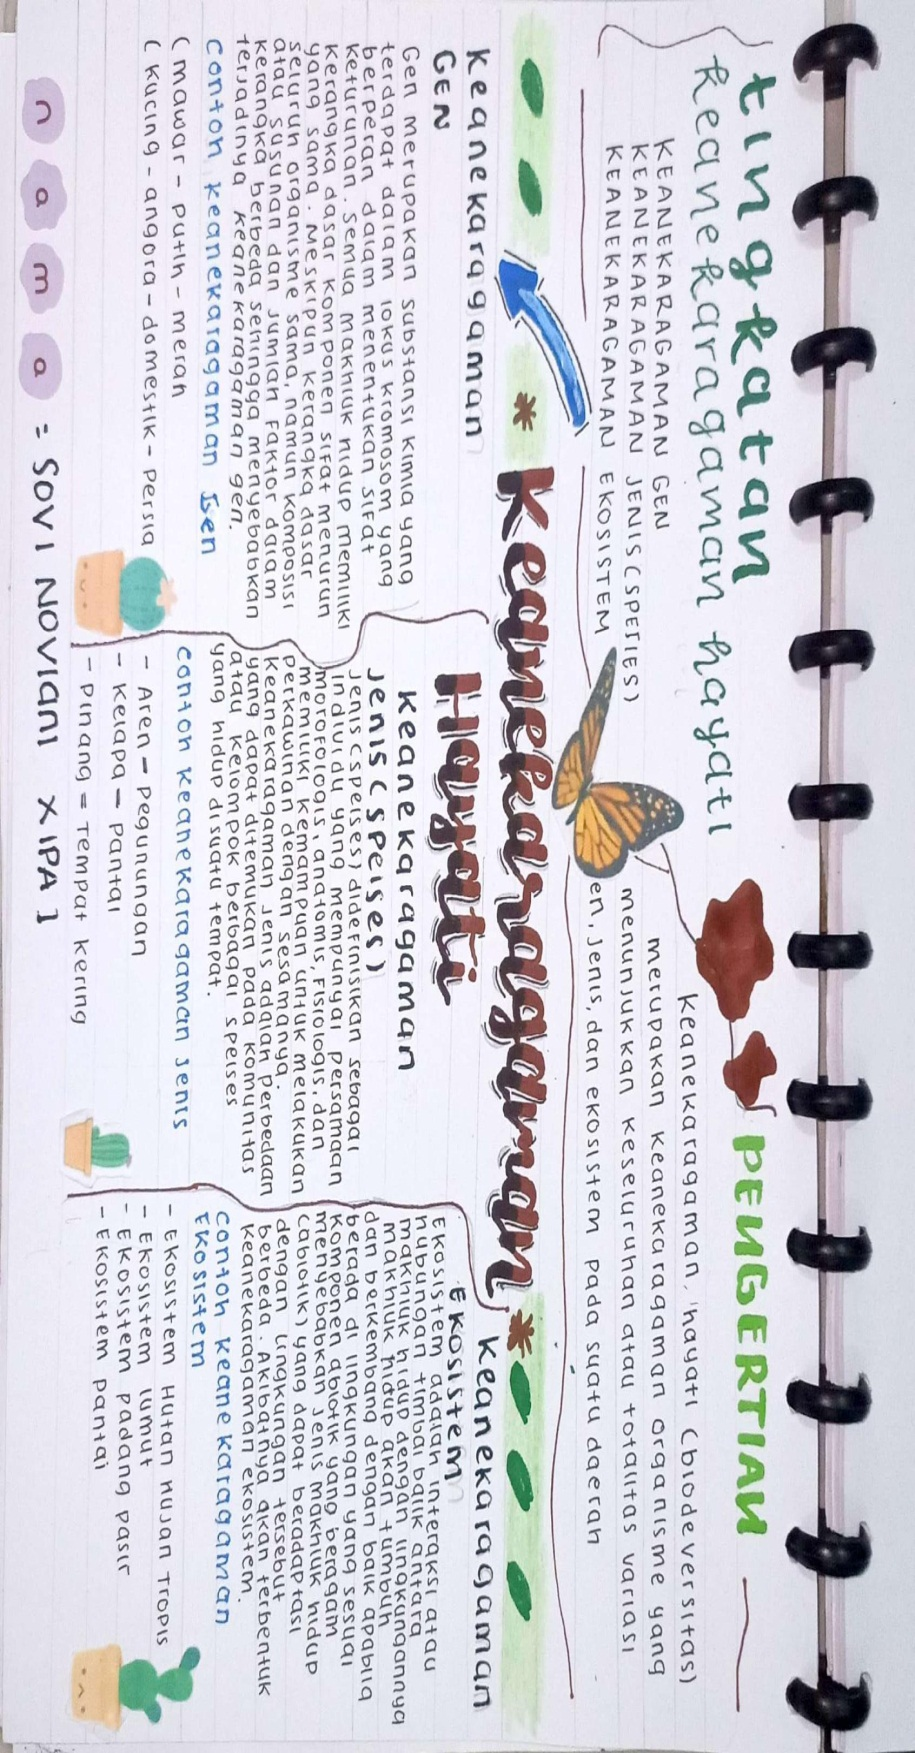 tingkatan
keanekaragaman hayati
KEANEKARAGAMAN GEN
KEANEKARAGAMAN JENIS (SPESIES)
KEANEKARAGAMAN EKOSISTEM
PENGERTIAN
Keanekaragaman, hayati (biodeversitas)
merupakan keanekaragaman organisme yang
menunjukan keseluruhan atau totalitas variasi
en, jenis, dan ekosistem pada suatu daerah
Keanekaragaman
Hayati
Keanekaragaman
GEN
Gen merupakan substansi kimia yang
terdapat dalam lokus kromosom yang
berperan dalam menentukan sifat
keturunan. Semua makhluk hidup memiliki
kerangka dasar komponen sifat menurun
yang sama. Meskipun kerangka dasar
seluruh organisme sama, namun komposisi
atau susunan dan jumlah faktor dalam
kerangka berbeda sehingga menyebabkan
terjadinya keanekaragaman gen.
Contoh keanekaragaman Gen
( mawar - putih - merah
( kucing - angora - domestik - persia
keanekaragaman
jenis (speises)
Jenis (speises) didefinisikan sebagai
individu yang mempunyai persamaan
morofologis, anatomis, fisiologis, dan
memiliki kemampuan untuk melakukan
perkawinan dengan sesamanya.
keanekaragaman jenis adalah perbedaan
yang dapat ditemukan pada komunitas
atau kelompok berbagai speises
yang hidup disuatu tempat.
contoh keanekaragaman jenis
- Aren - pegunungan
- kelapa - pantai
- pinang = tempat kering
keanekaragaman
Ekosistem
Ekosistem adalah interaksi atau
hubungan timbal balik antara
makhluk hidup dengan lingkungannya
makhluk hidup akan tumbuh
dan berkembang dengan baik apablia
berada di lingkungan yang sesuai
komponen abiotik yang beragam
menyebabkan jenis makhluk hidup
(abiotik) yang dapat beradaptasi
dengan lingkungan tersebut
berbeda. Akibatnya akan terbentuk
keanekaragaman ekosistem.
contoh keanekaragaman
Ekosistem
- Ekosistem Hutan Hujan Tropis
- Ekosistem lumut
- Ekosistem padang pasir
- Ekosistem pantai
nama = SOVI NOVIANI X IPA 1